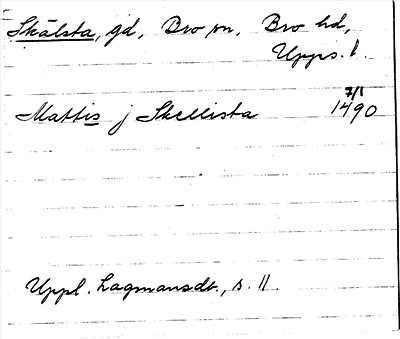 Skälsta, gd, Bro sn, Bro hd,
Upps. l.
7/1
Mattis j Skellista 1490
Uppl. Lagmansdb., s. 11.